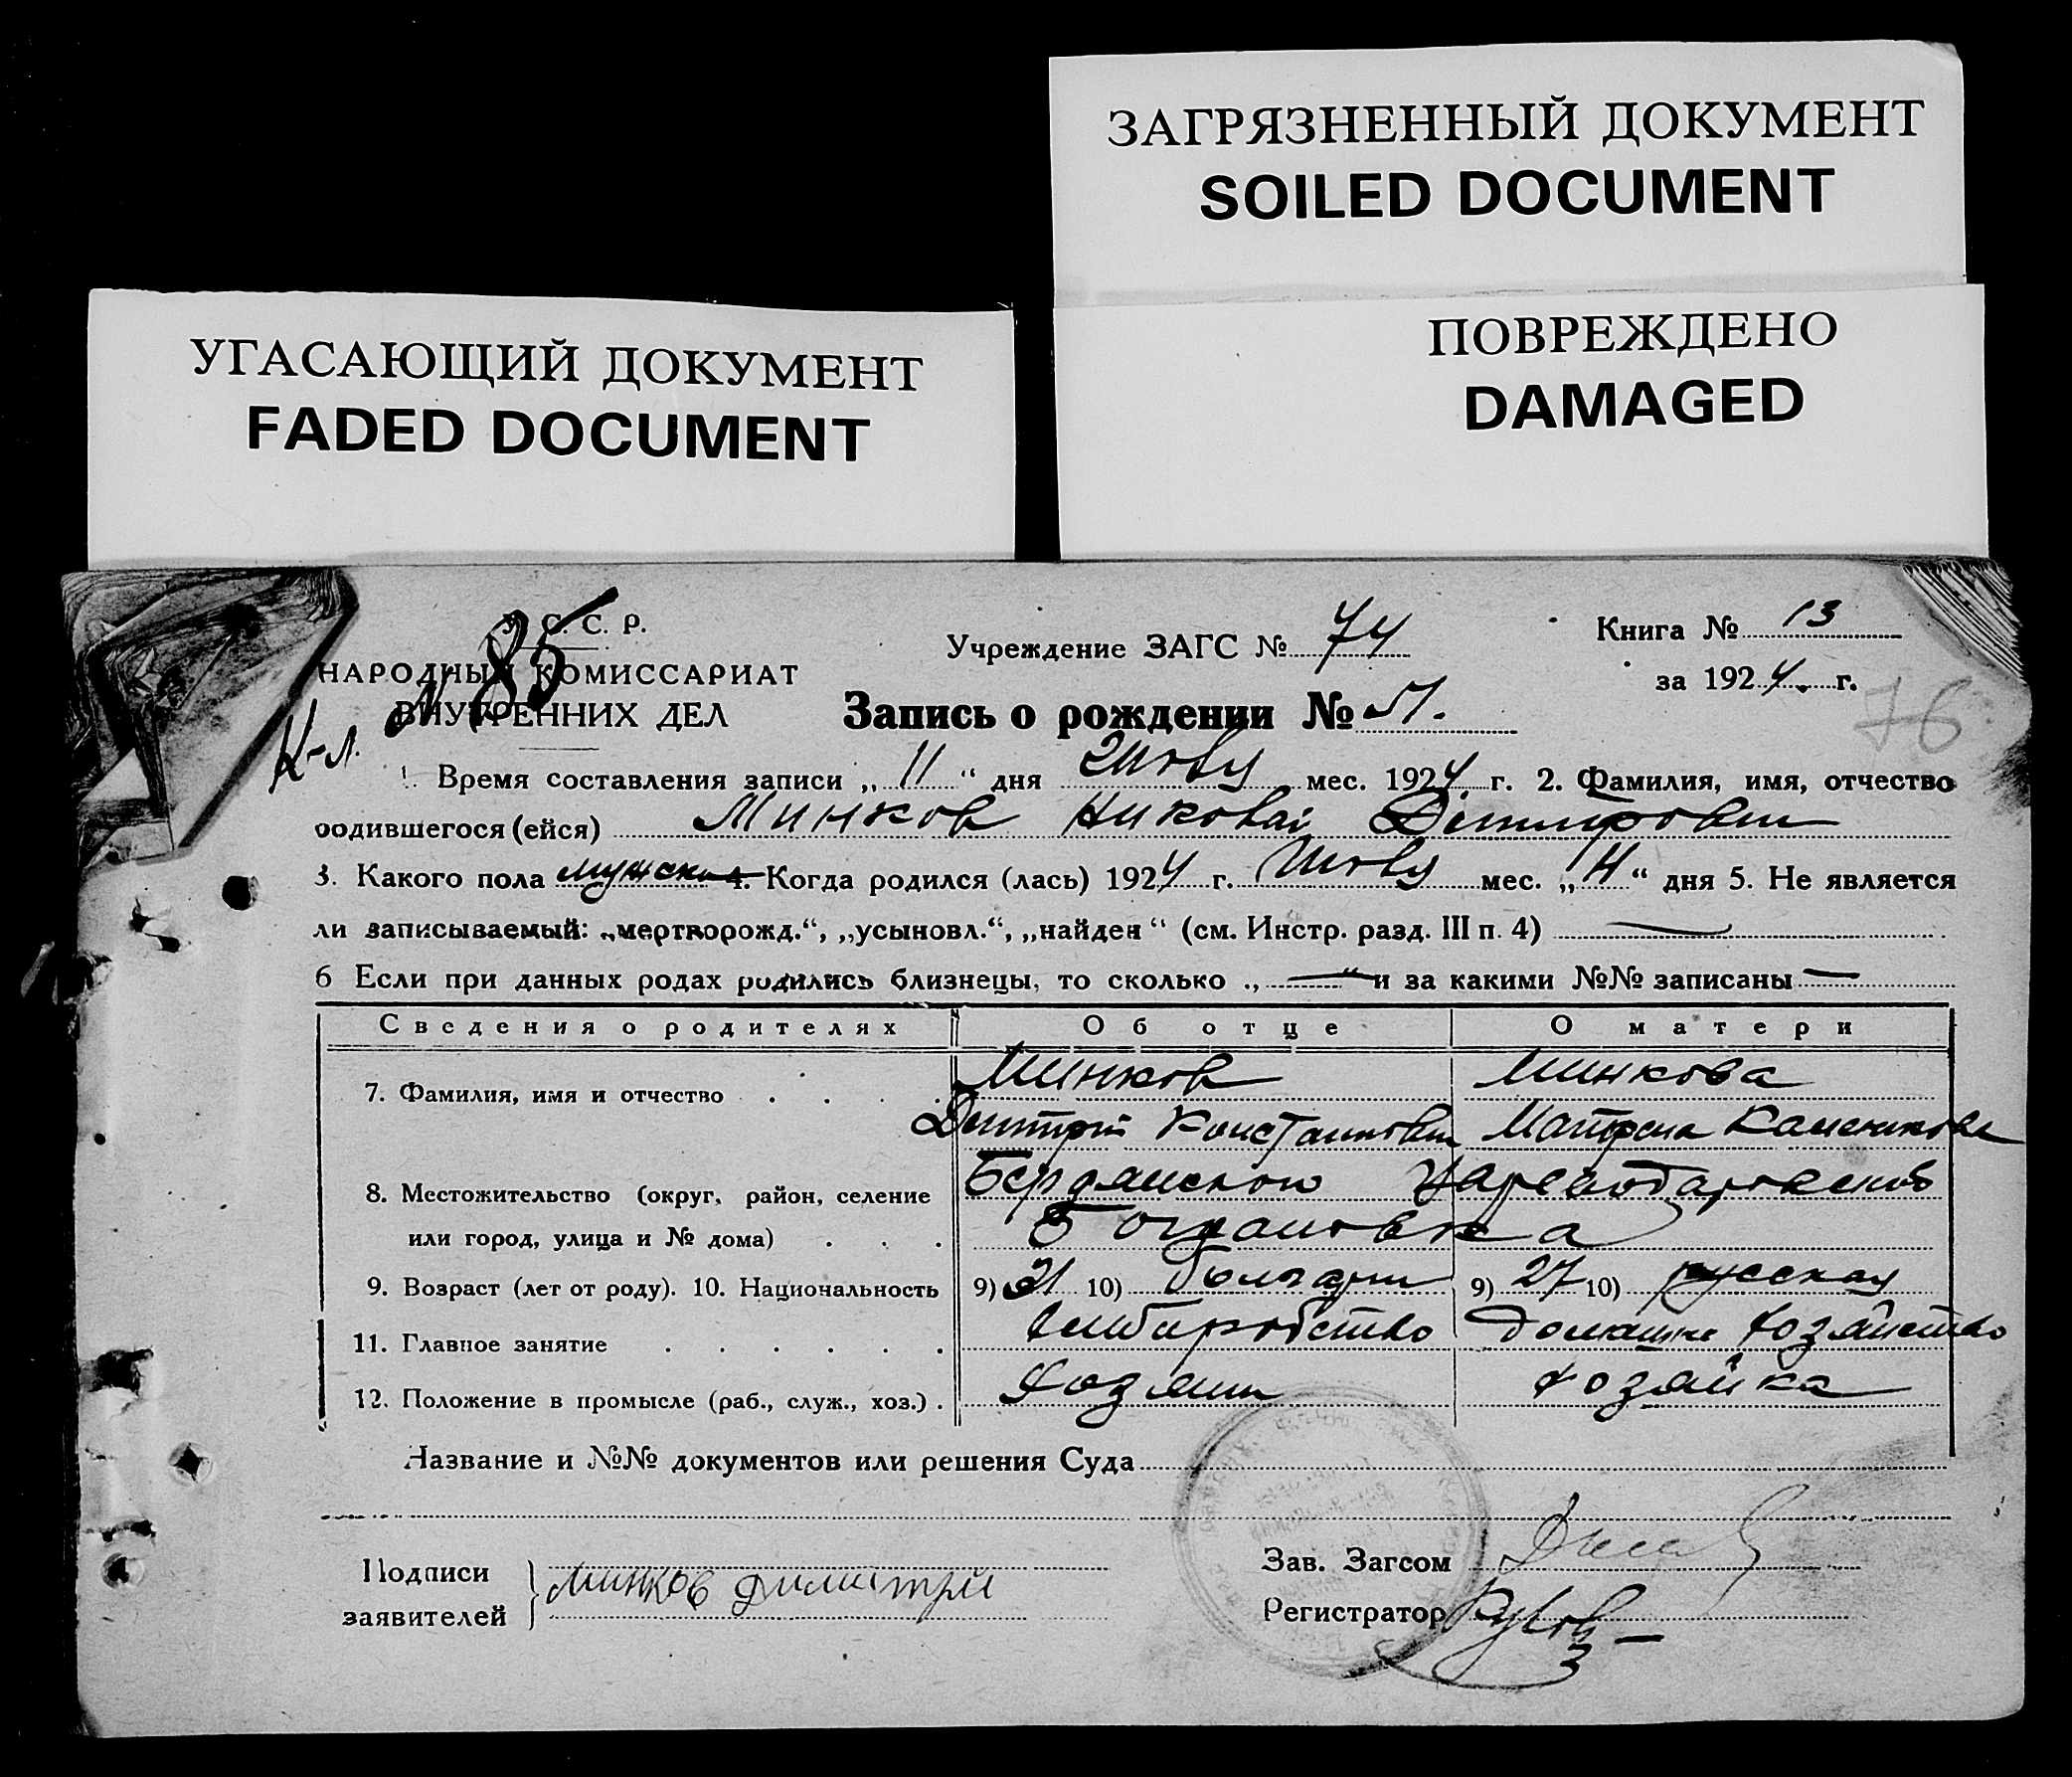 ЗАГРЯЗНЕННЫЙ ДОКУМЕНТ
SOILED DOCUMENT
ПОВРЕЖДЕНО
DAMAGED
УГАСАЮЩИЙ ДОКУМЕНТ
FADED DOCUMENT
У. С. С. Р.
НАРОДНЫЙ КОМИССАРИАТ
ВНУТРЕННИХ ДЕЛ
К-л. № 85
Учреждение ЗАГС № 74
Книга № 13
за 1924 г.
76
Запись о рождении № 51.
1. Время составления записи „ 11 “ дня мес. 1924 г. 2. Фамилия, имя, отчество
родившегося (ейся) Минков Николай Дмитрович
3. Какого пола мужско 4. Когда родился (лась) 1924 г. мес. „ 4 “ дня 5. Не является
ли записываемый: „мертворожд.“, „усыновл.“, „найден“ (см. Инстр. разд. III п. 4) —
6 Если при данных родах родились близнецы, то сколько „ — “ и за какими №№ записаны —
Сведения о родителях Об отце О матери
7. Фамилия, имя и отчество Минков Минкова
Дмитрий Константинович Матрена
8. Местожительство (округ, район, селение Бердянской Цареводаровской
или город, улица и № дома) Богдановка
9. Возраст (лет от роду). 10. Национальность 9) 31 10) болгарин 9) 27 10) русская
11. Главное занятие хлибиробство домашне хозяйство
12. Положение в промысле (раб., служ., хоз.) хозяин хозяйка
Название и №№ документов или решения Суда
Подписи
заявителей
Минков Димитрий
Зав. Загсом
Регистратор